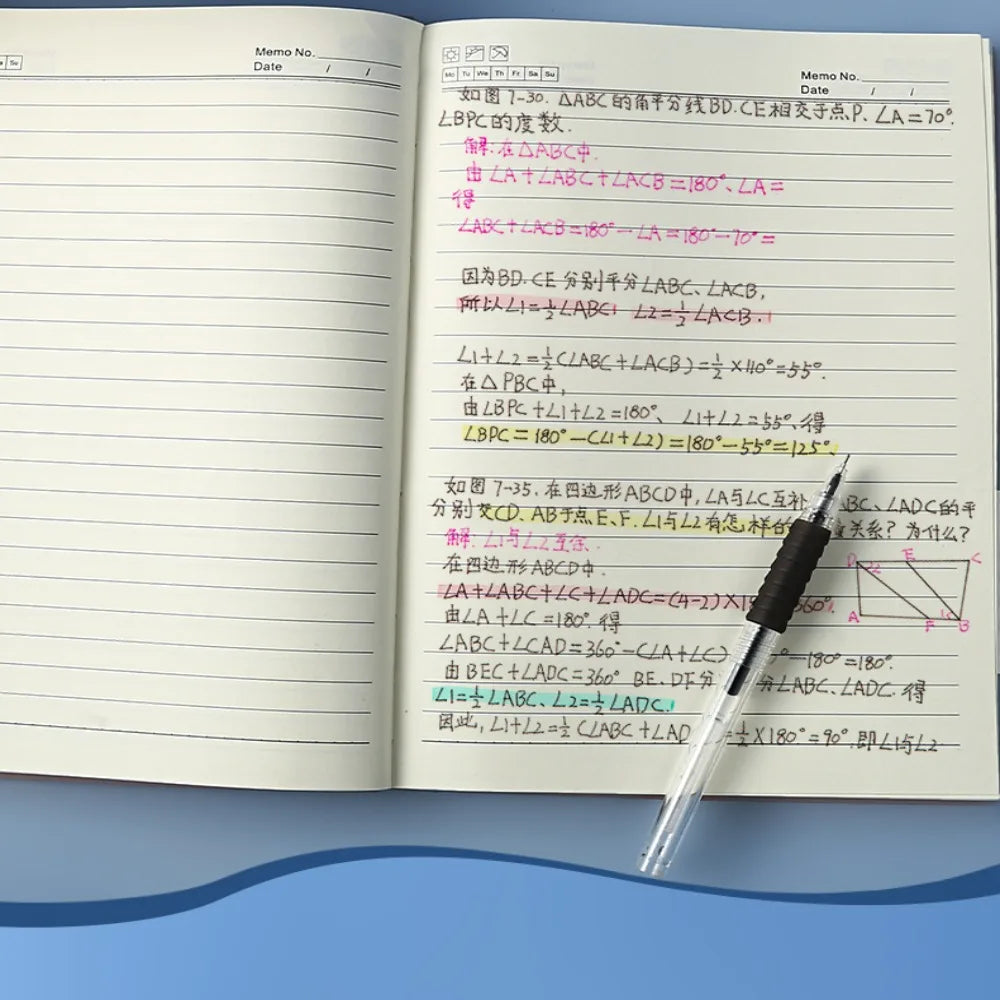 Su
Memo No.
Date / /
Mo Tu We Th Fr Sa Su
Memo No.
Date / /
如图7-30.△ABC的角平分线BD.CE相交于点P、∠A=70°.
∠BPC的度数.
解:在△ABC中.
由∠A+∠ABC+∠ACB=180°、∠A=
得
∠ABC+∠ACB=180°-∠A=180°-70°=
因为BD.CE分别平分∠ABC、∠ACB,
所以∠1=½∠ABC ∠2=½∠ACB.
∠1+∠2=½(∠ABC+∠ACB)=½×110°=55°.
在△PBC中,
由∠BPC+∠1+∠2=180°、∠1+∠2=55°、得
∠BPC=180°-(∠1+∠2)=180°-55°=125°.
如图7-35.在四边形ABCD中,∠A与∠C互补 ABC、∠ADC的平
分别交CD、AB于点E、F.∠1与∠2有怎样的 关系?为什么?
解:∠1与∠2互余.
在四边形ABCD中.
D E C
2
∠A+∠ABC+∠C+∠ADC=(4-2)×18 360°.
由∠A+∠C=180°.得
A F 1 B
∠ABC+∠CAD=360°-(∠A+∠C) °-180°=180°.
由BEC+∠ADC=360° BE、DF分 分∠ABC、∠ADC.得
∠1=½∠ABC、∠2=½∠ADC.
因此,∠1+∠2=½(∠ABC+∠AD =½×180°=90°.即∠1与∠2